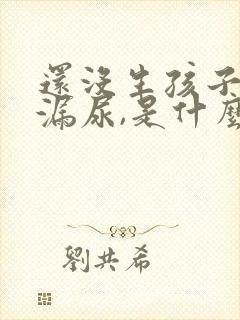 還沒生孩子
漏尿,是什麼
劉共希